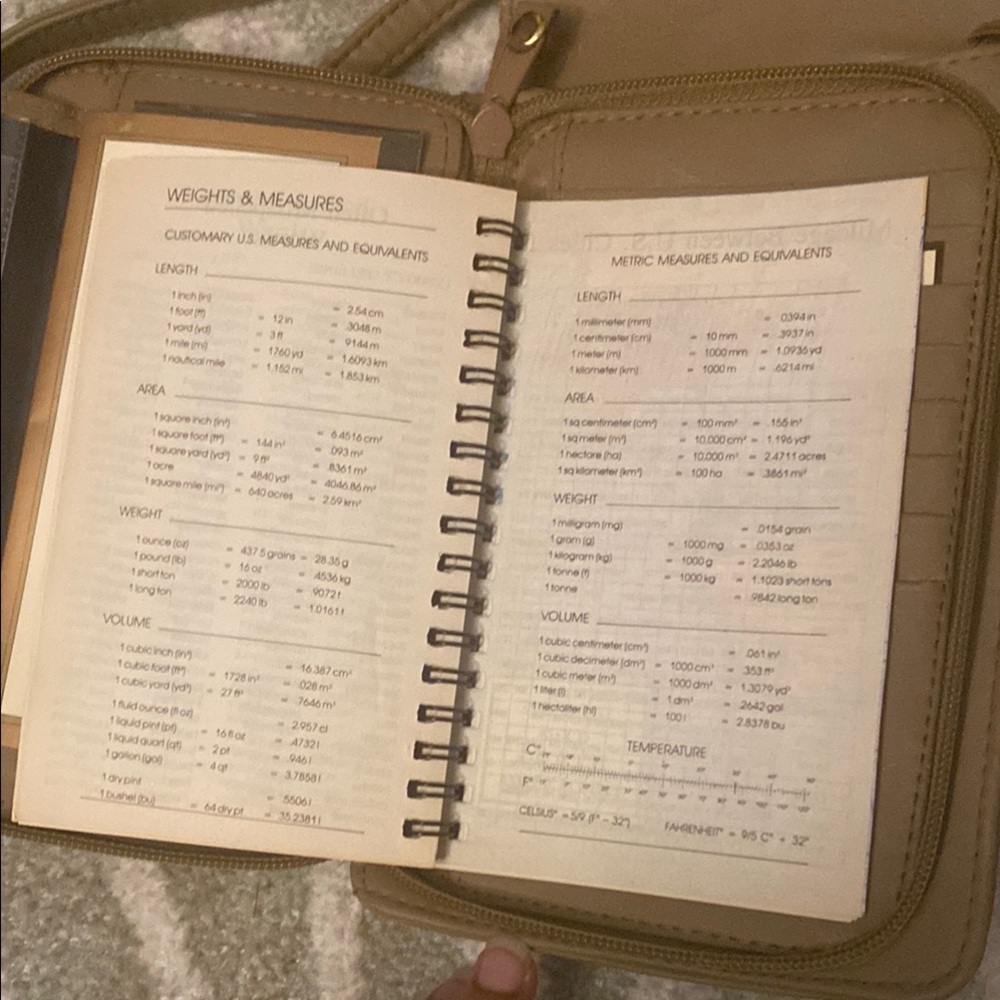 WEIGHTS & MEASURES
CUSTOMARY U.S. MEASURES AND EQUIVALENTS
LENGTH
1 inch (in) = 2.54 cm
1 foot (ft) = 12 in = .3048 m
1 yard (yd) = 3 ft = .9144 m
1 mile (mi) = 1760 yd = 1.6093 km
1 nautical mile = 1.152 mi = 1.853 km
AREA
1 square inch (in²) = 6.4516 cm²
1 square foot (ft²) = 144 in² = .093 m²
1 square yard (yd²) = 9 ft² = .8361 m²
1 acre = 4840 yd² = 4046.86 m²
1 square mile (mi²) = 640 acres = 2.59 km²
WEIGHT
1 ounce (oz) = 437.5 grains = 28.35 g
1 pound (lb) = 16 oz = .4536 kg
1 short ton = 2000 lb = .9072 t
1 long ton = 2240 lb = 1.0161 t
VOLUME
1 cubic inch (in³) = 16.387 cm³
1 cubic foot (ft³) = 1728 in³ = .028 m³
1 cubic yard (yd³) = 27 ft³ = .7646 m³
1 fluid ounce (fl oz) = 2.957 cl
1 liquid pint (pt) = 16 fl oz = .4732 l
1 liquid quart (qt) = 2 pt = .946 l
1 gallon (gal) = 4 qt = 3.7858 l
1 dry pint = .5506 l
1 bushel (bu) = 64 dry pt = 35.2381 l
METRIC MEASURES AND EQUIVALENTS
LENGTH
1 millimeter (mm) = .0394 in
1 centimeter (cm) = 10 mm = .3937 in
1 meter (m) = 1000 mm = 1.0936 yd
1 kilometer (km) = 1000 m = .6214 mi
AREA
1 sq centimeter (cm²) = 100 mm² = .155 in²
1 sq meter (m²) = 10,000 cm² = 1.196 yd²
1 hectare (ha) = 10,000 m² = 2.4711 acres
1 sq kilometer (km²) = 100 ha = .3861 mi²
WEIGHT
1 milligram (mg) = .0154 grain
1 gram (g) = 1000 mg = .0353 oz
1 kilogram (kg) = 1000 g = 2.2046 lb
1 tonne (t) = 1000 kg = 1.1023 short tons
1 tonne = .9842 long ton
VOLUME
1 cubic centimeter (cm³) = .061 in³
1 cubic decimeter (dm³) = 1000 cm³ = .353 ft³
1 cubic meter (m³) = 1000 dm³ = 1.3079 yd³
1 liter (l) = 1 dm³ = .2642 gal
1 hectoliter (hl) = 100 l = 2.8378 bu
TEMPERATURE
C°
F°
CELSIUS° = 5/9 (F° – 32°) FAHRENHEIT° = 9/5 C° + 32°